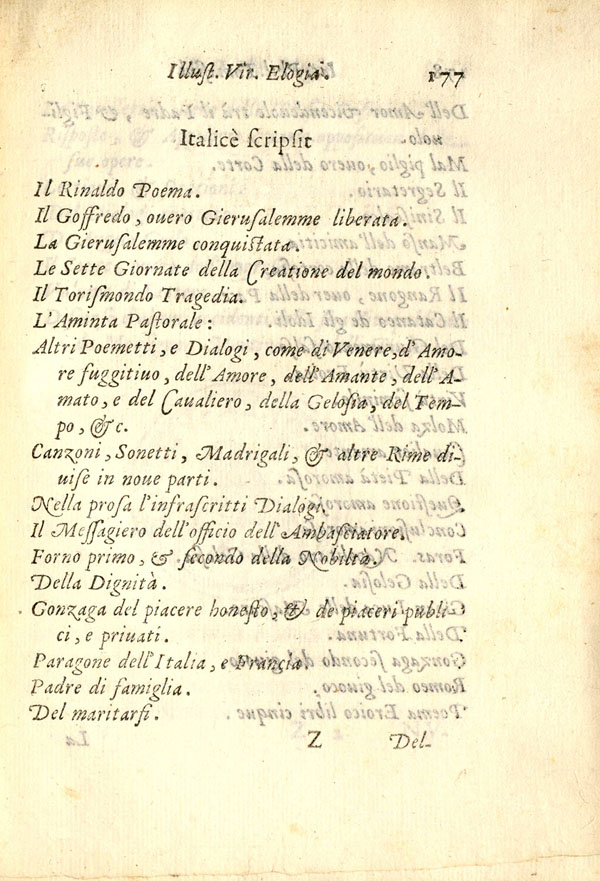 Illuſt. Vir. Elogia. 177
Italicè ſcripſit
Il Rinaldo Poema.
Il Goffredo, ouero Gieruſalemme liberata.
La Gieruſalemme conquiſtata.
Le Sette Giornate della Creatione del mondo.
Il Toriſmondo Tragedia.
L'Aminta Paſtorale:
Altri Poemetti, e Dialogi, come di Venere, d'Amo-
re fuggitiuo, dell'Amore, dell'Amante, dell'A-
mato, e del Caualiero, della Geloſia, del Tem-
po, &c.
Canzoni, Sonetti, Madrigali, & altre Rime di-
uiſe in noue parti.
Nella proſa l'infraſcritti Dialogi.
Il Meſſagiero dell'officio dell'Ambaſciatore.
Forno primo, & ſecondo della Nobiltà.
Della Dignità.
Gonzaga del piacere honeſto, & de piaceri publi-
ci, e priuati.
Paragone dell'Italia, e Francia.
Padre di famiglia.
Del maritarſi.
Z Del-